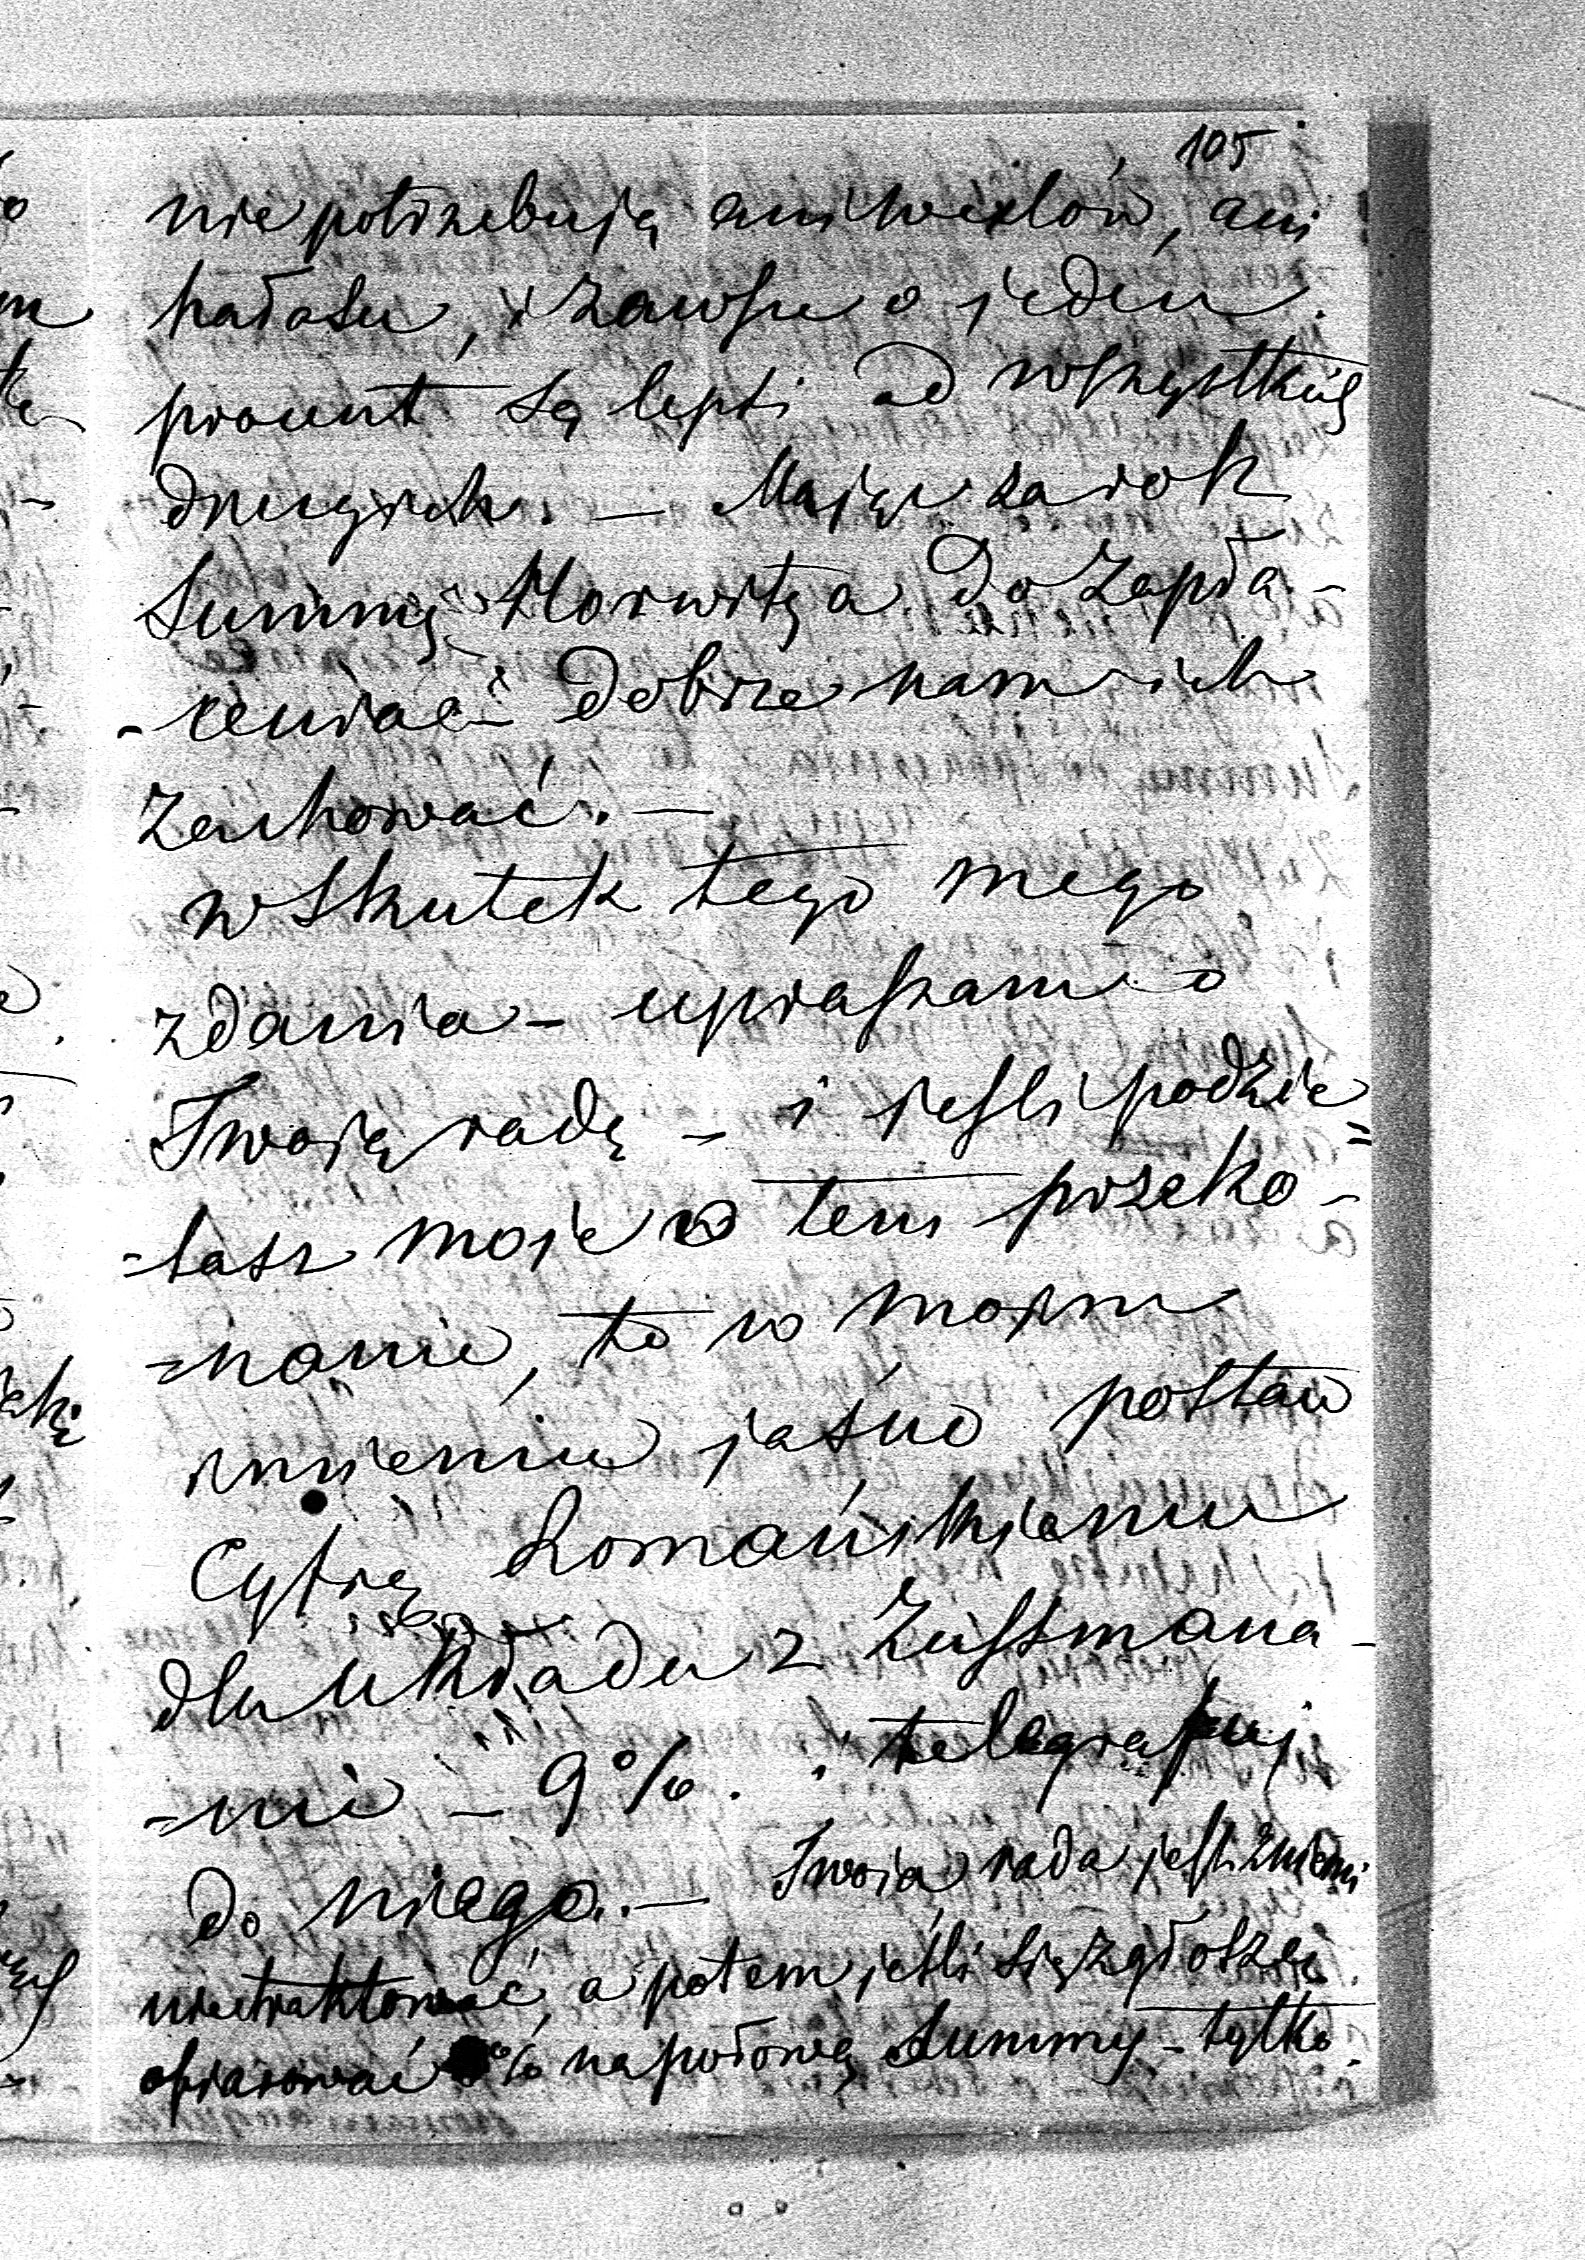 105
nie potrzebują ani wexlów, ani
hałasu, i zawsze o jeden
procent są lepsi od wszystkich
drugich. — Mając za rok
Summę Horwitza do zapła-
-cenia — dobrze nam ich
zachować. —
w skutek tego mego
zdania — upraszam o
Twoją radę — i jeśli podzie=
=lasz moje o tem przeko-
=nanie, to w mojm
imieniu jaśno postaw
Cyfrę Łomańskiemu
dla układu z Zussmana-
=mi — 9%. i telegrafuj
do niego. — Twoja rada jeśli
nietraktować, a potem jeśli się zgłoszą
ofiarować % na połowę Summy — tylko